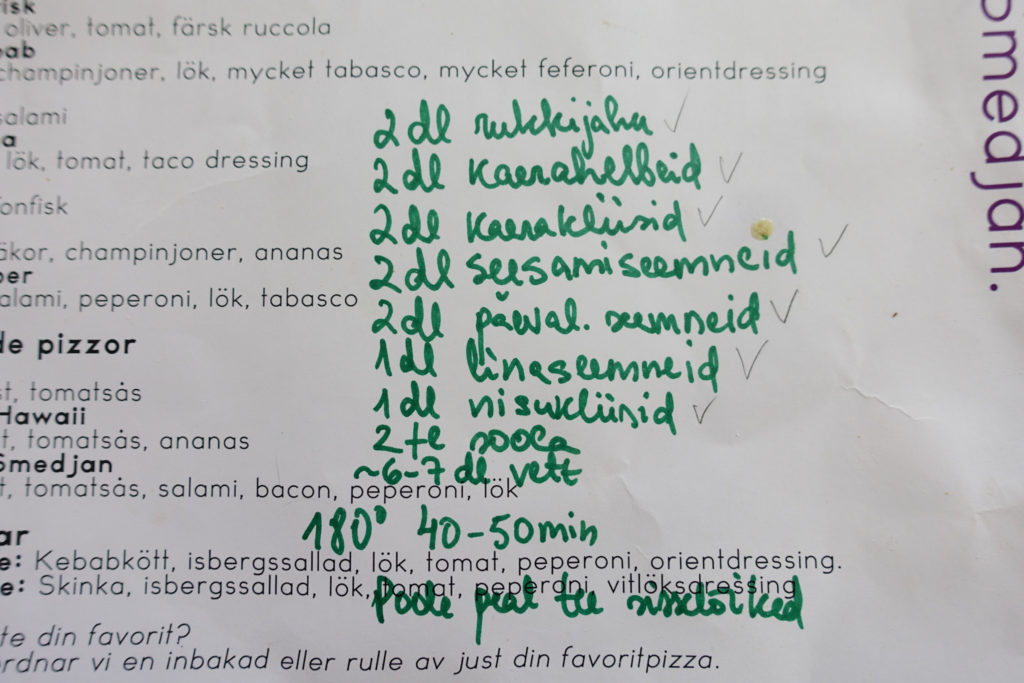 isk
oliver, tomat, färsk ruccola
ab
champinjoner, lök, mycket tabasco, mycket feferoni, orientdressing
salami
a
lök, tomat, taco dressing
onfisk
äkor, champinjoner, ananas
per
alami, peperoni, lök, tabasco
de pizzor
st, tomatsås
Hawaii
t, tomatsås, ananas
Smedjan
t, tomatsås, salami, bacon, peperoni, lök
ar
e: Kebabkött, isbergssallad, lök, tomat, peperoni, orientdressing.
e: Skinka, isbergssallad, lök, tomat, peperoni, vitlöksdressing
te din favorit?
ordnar vi en inbakad eller rulle av just din favoritpizza.
2 dl rukkijahu
2 dl kaerahelbeid
2 dl kaerakliisid
2 dl seesamiseemneid
2 dl päeval. seemneid
1 dl linaseemneid
1 dl nisukliisid
2 te soola
~6-7 dl vett
180° 40-50min
Poole peal tee sisselõiked
omedjan.